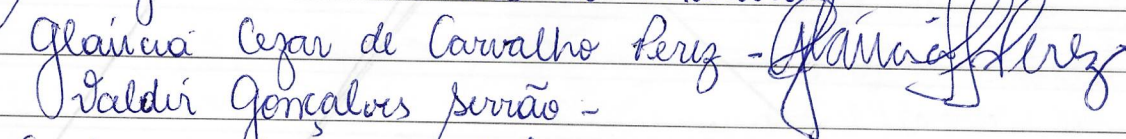 Gláucia Cezar de Carvalho Perez - Gláucia Perez
Valdir Gonçalves Serrão -